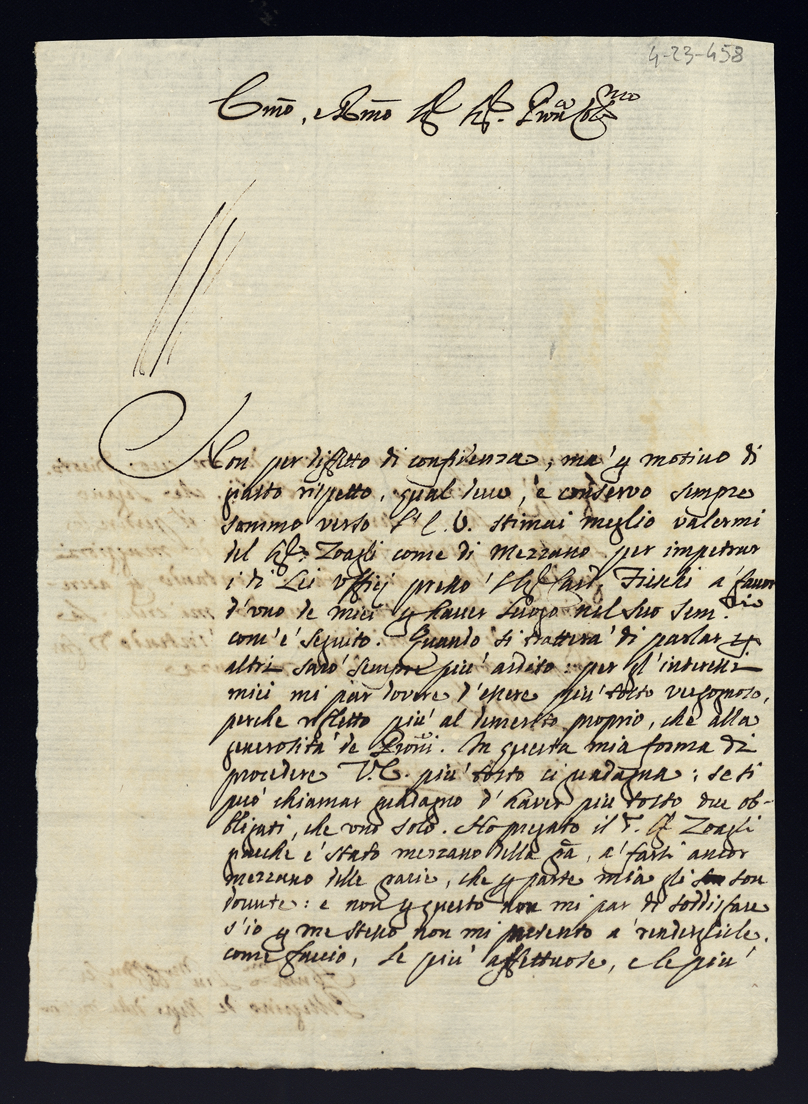 4-23-458
Em̃o, e Rm̃o Sig.r Sig.r P'ron Col.mo
Non per diffetto di confidenza, ma' p motivo di
giusto rispetto, qual devo, e conservo sempre
sommo verso l'E. V. stimai meglio valermi
del Sig.r Zoagli come di mezzano per impetrar
i di Lei officij presso l' Sig.r Card. Fieschi a favor
d'uno de miei p haver luogo nel suo Sem.rio
com'è seguito. Quando si tratterà di parlar p
altri sarò sempre più ardito: per gl'interessi
miei mi par dovere d'essere più tosto vergognoso,
perche rifletto più al demerito proprio, che alla
generosità de P'roni. In questa mia forma di
procedere V.E. più tosto ci guadagna: se si
può chiamar guadagno d'haver più tosto due ob-
bligati, che uno solo. Ho pregato il Sig.r Zoagli
perche è stato mezzano della , à farsi ancor
mezzano delle gratie, che p parte mia gli son
dovute: e non p questo non mi par di soddisfare
s'io p me stesso non mi presento à rendergliele,
come faccio, le più affettuose, e le più